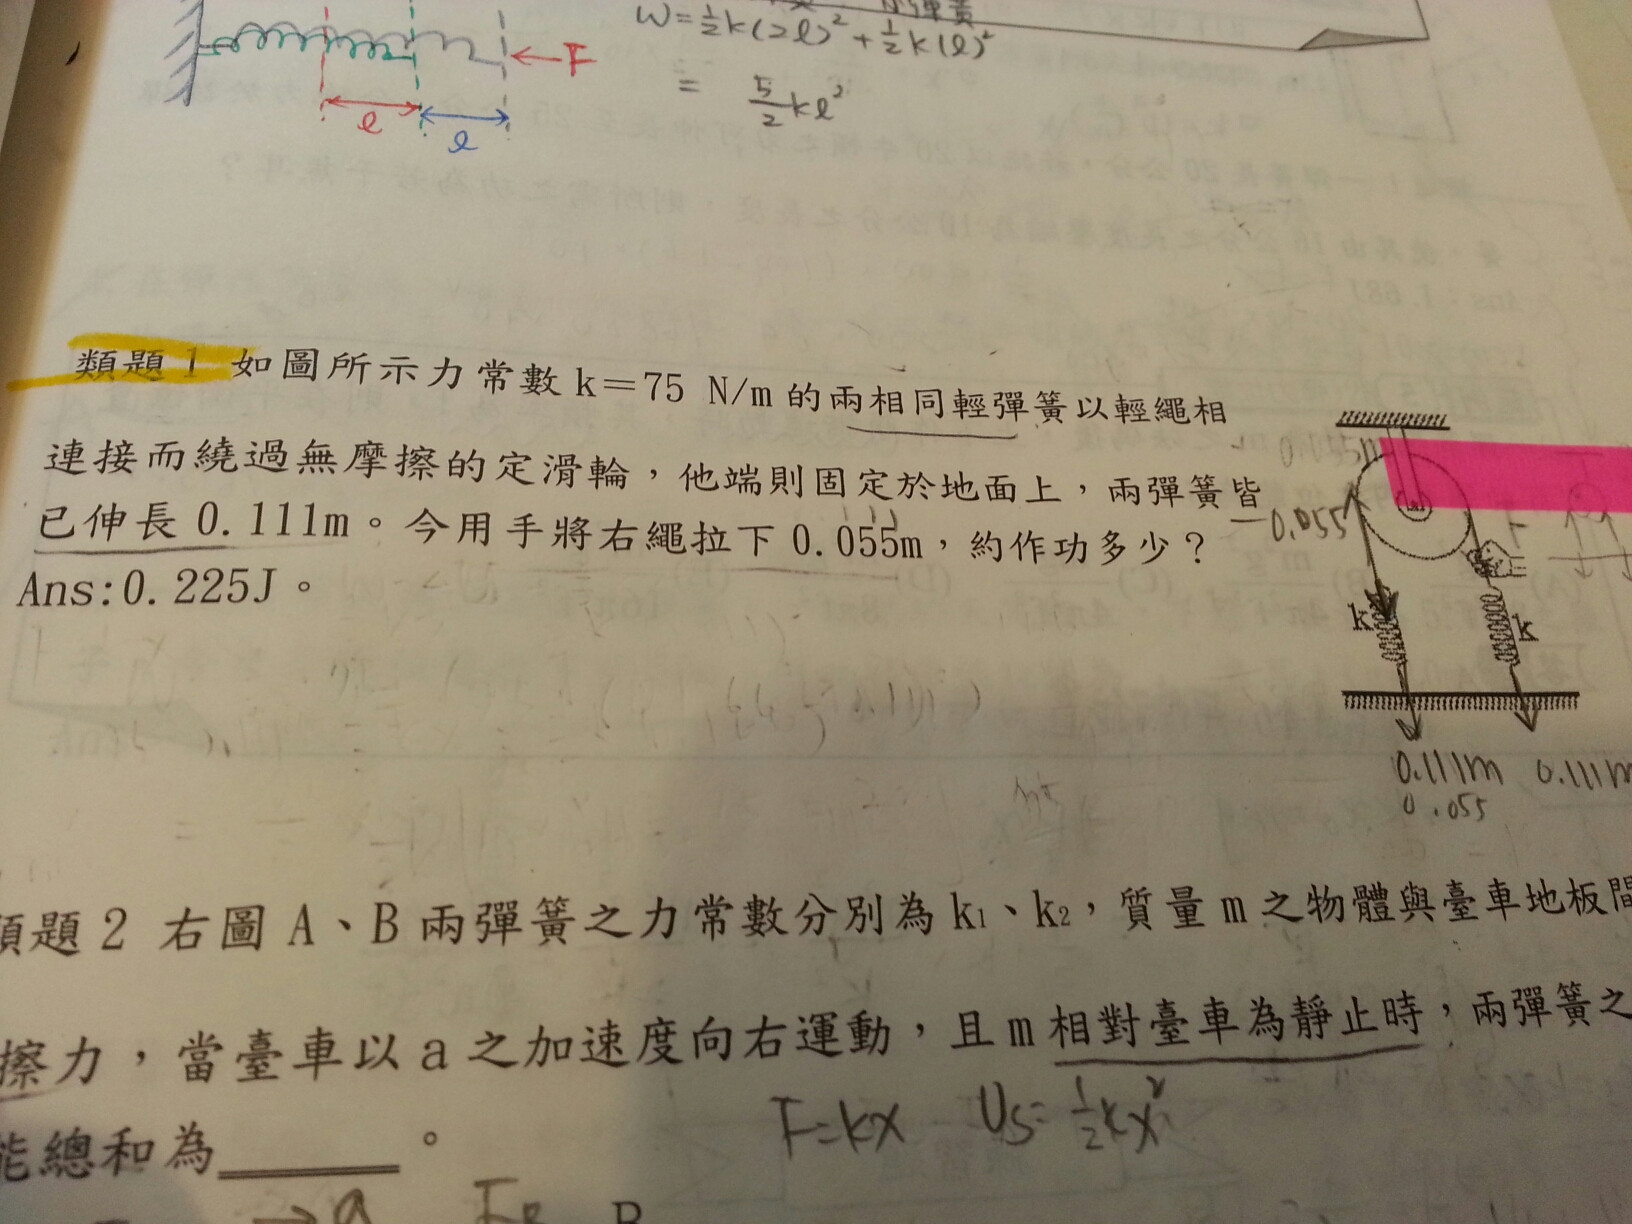 W=½k(2l)²+½k(l)²
= 5/2 kl²
F
l
l
類題1 如圖所示力常數k=75 N/m的兩相同輕彈簧以輕繩相
連接而繞過無摩擦的定滑輪，他端則固定於地面上，兩彈簧皆
已伸長0.111m。今用手將右繩拉下0.055m，約作功多少？
Ans:0.225J。
0.055
k
k
0.111m 0.111m
0.055
類題2 右圖A、B兩彈簧之力常數分別為k₁、k₂，質量m之物體與臺車地板間
擦力，當臺車以a之加速度向右運動，且m相對臺車為靜止時，兩彈簧之
能總和為______。
F=kx Us=½kx²
a